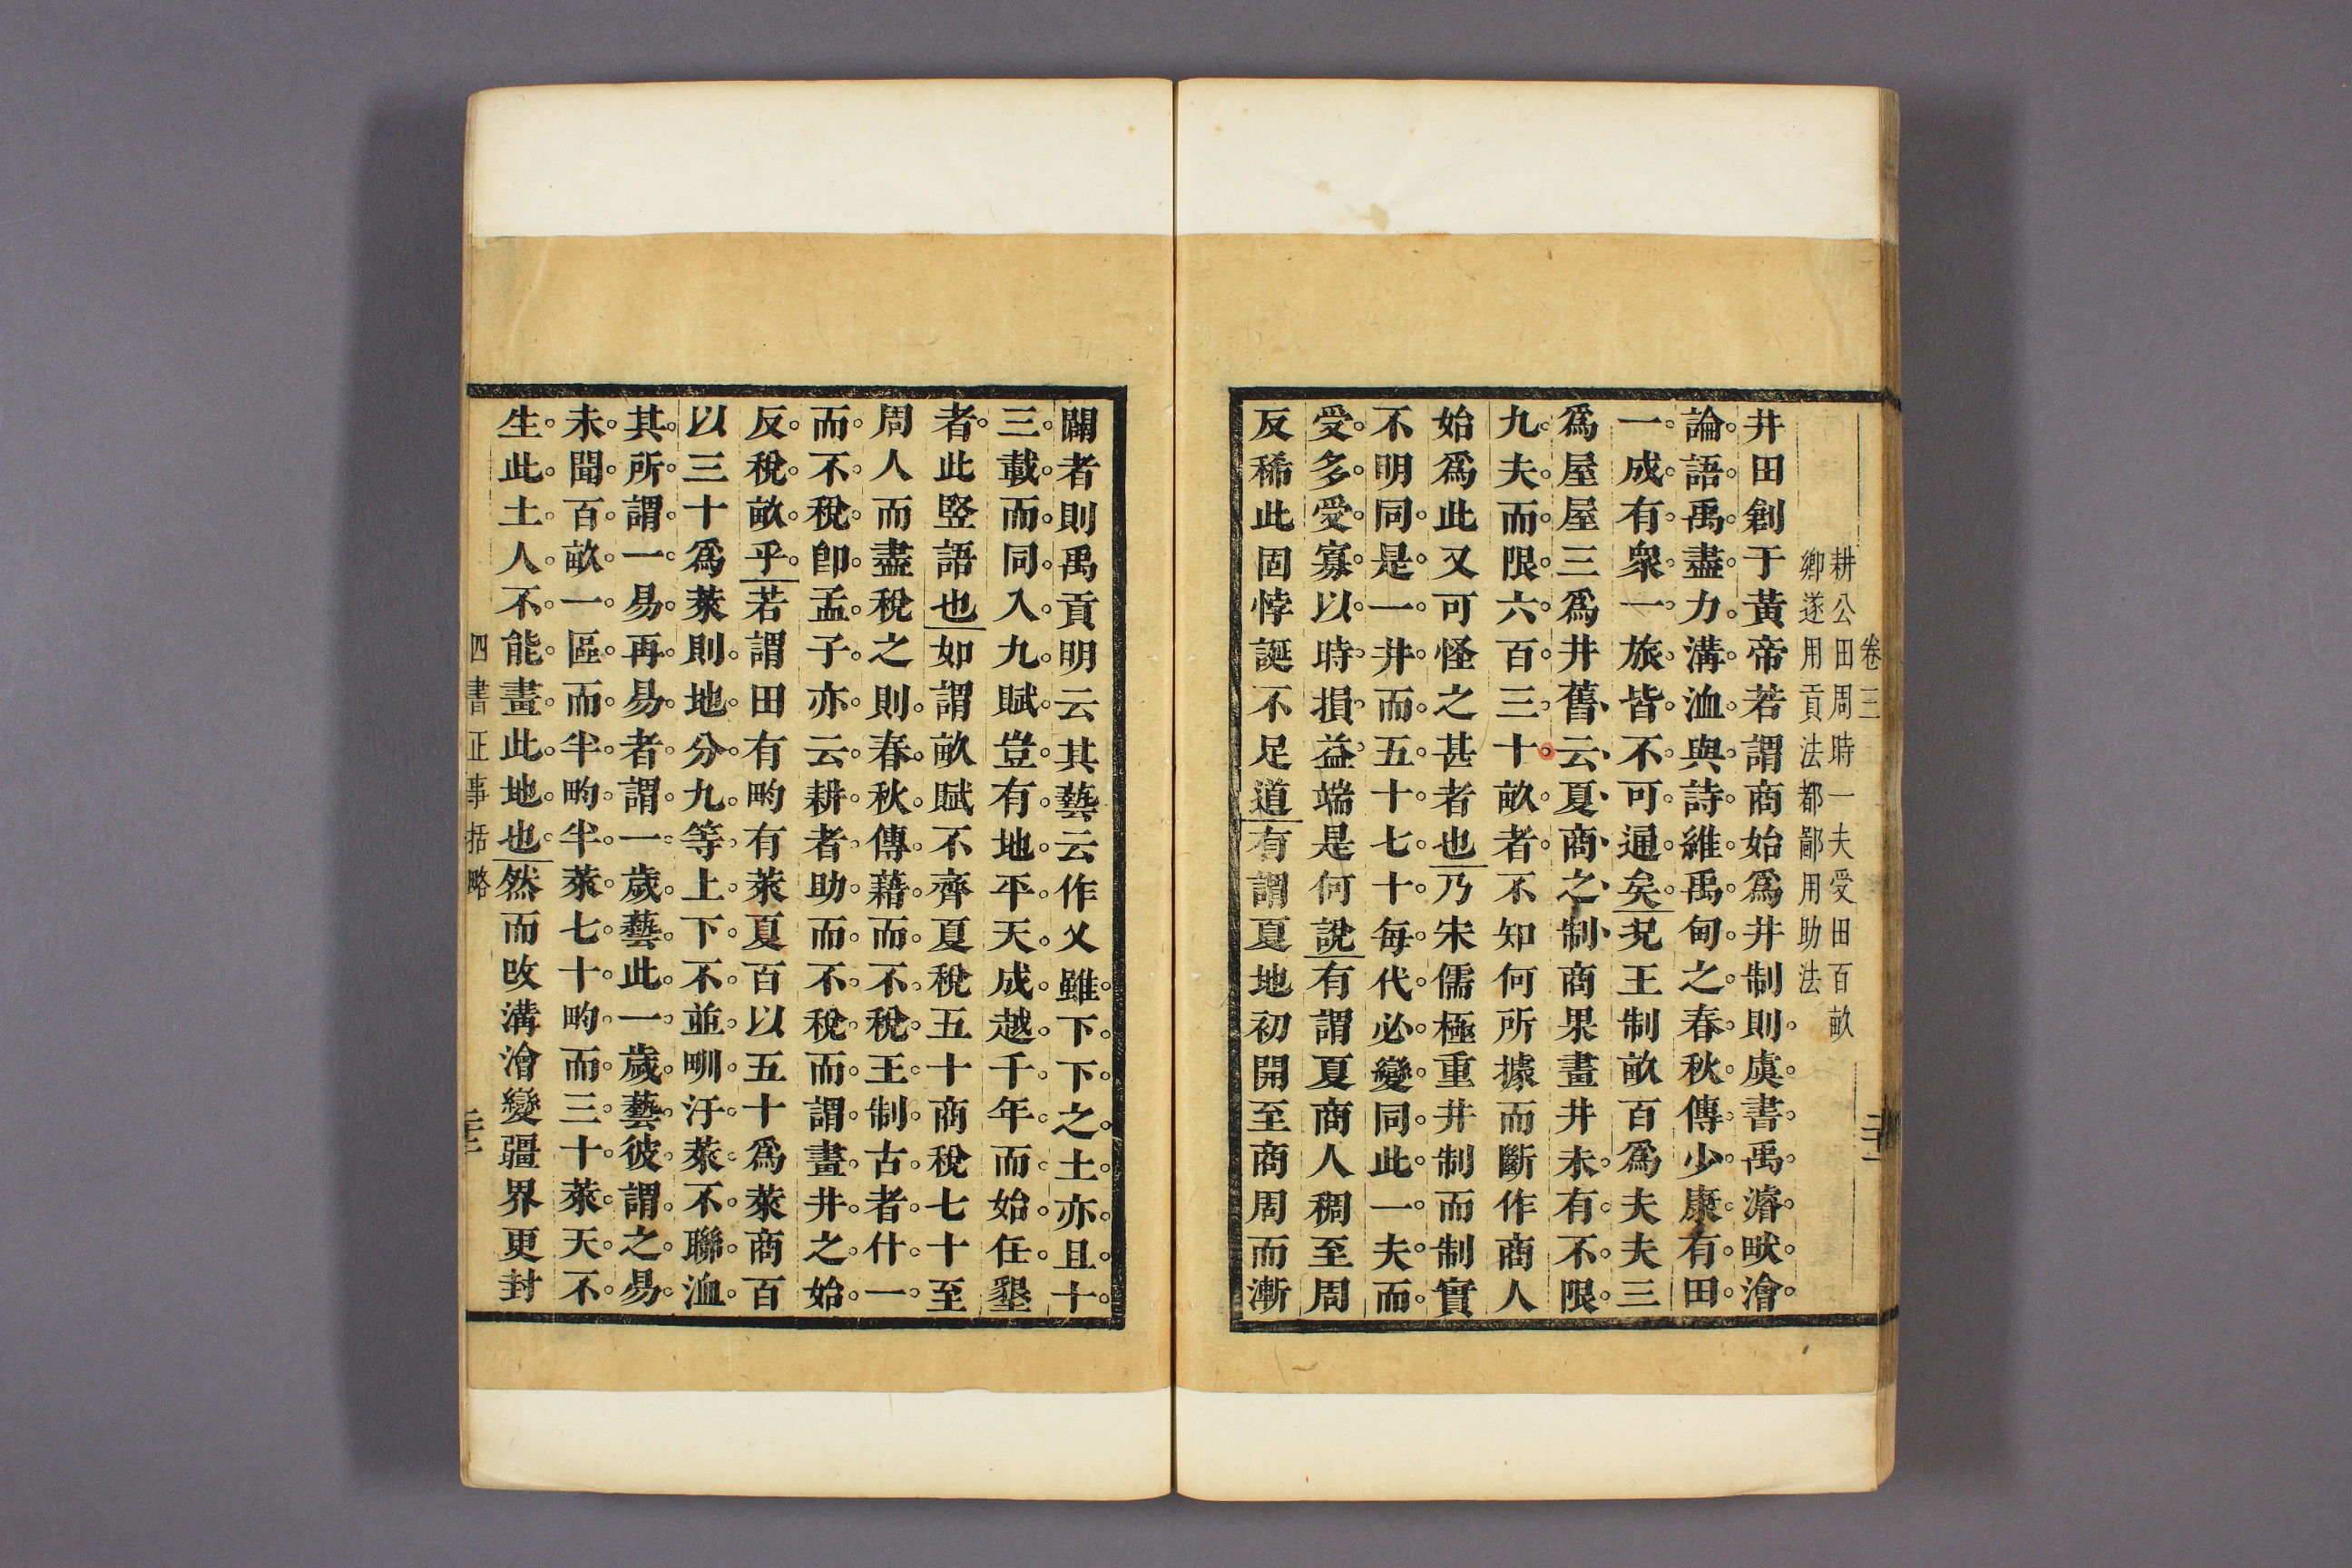 卷三
二十二
耕公田周時一夫受田百畝
鄉遂用貢法都鄙用助法
井田創于黃帝若謂商始爲井制則虞書禹濬畎澮
論語禹盡力溝洫與詩維禹甸之春秋傳少康有田
一成有衆一旅皆不可通矣況王制畝百爲夫夫三
爲屋屋三爲井舊云夏商之制商果畫井未有不限
九夫而限六百三十畝者不知何所據而斷作商人
始爲此又可怪之甚者也乃宋儒極重井制而制實
不明同是一井而五十七十每代必變同此一夫而
受多受寡以時損益端是何說有謂夏商人稠至周
反稀此固悖誕不足道有謂夏地初開至商周而漸
闢者則禹貢明云其藝云作乂雖下下之土亦且十
三載而同入九賦豈有地平天成越千年而始任墾
者此豎語也如謂畝賦不齊夏稅五十商稅七十至
周人而盡稅之則春秋傳藉而不稅王制古者什一
而不稅卽孟子亦云耕者助而不稅而謂畫井之始
反稅畝乎若謂田有畇有萊夏百以五十爲萊商百
以三十爲萊則地分九等上下不並甽汙萊不聯洫
其所謂一易再易者謂一歲藝此一歲藝彼謂之易
未聞百畝一區而半畇半萊七十畇而三十萊天不
生此土人不能畫此地也然而改溝澮變疆界更封
四書正事括略